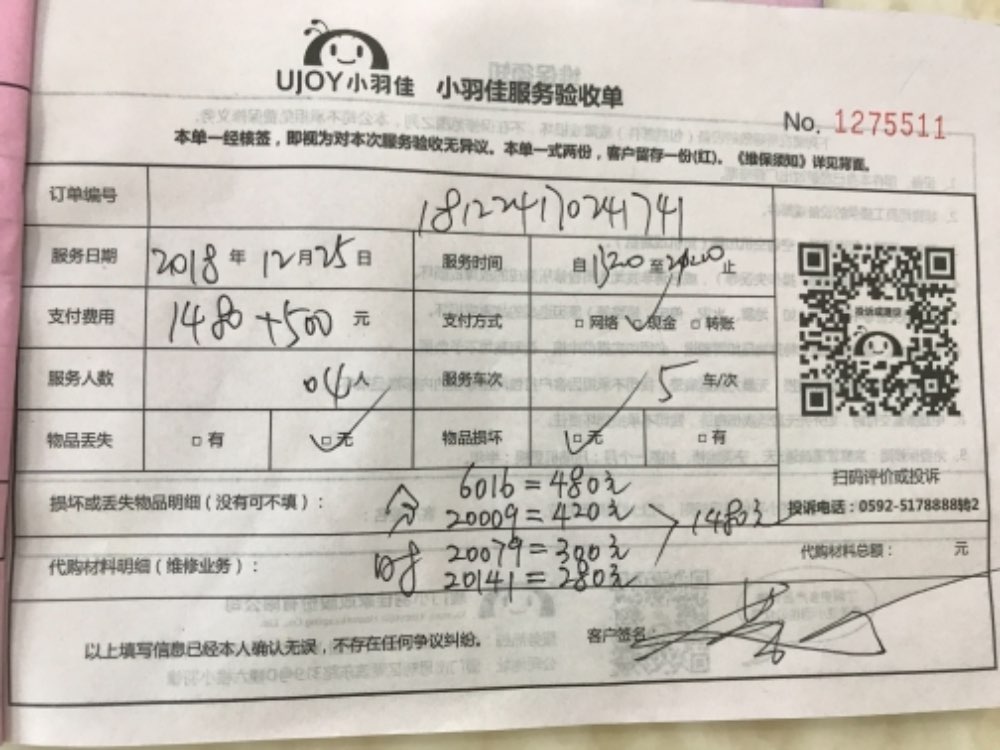 UJOY小羽佳 小羽佳服务验收单
No. 1275511
本单一经核签，即视为对本次服务验收无异议。本单一式两份，客户留存一份(红)。《维保须知》详见背面。
订单编号 181224170241741
服务日期 2018年12月25日 服务时间 自1320至2020止
支付费用 1480+500元 支付方式 □网络 ☑现金 □转账
服务人数 04人 服务车次 5 车/次
物品丢失 □有 ☑无 物品损坏 ☑无 □有
扫码评价或投诉
损坏或丢失物品明细（没有可不填）： 6016=480元
20009=420元 1480元
投诉电话：0592-5178888转2
代购材料明细（维修业务）： 20079=300元
20141=280元
代购材料总额： 元
以上填写信息已经本人确认无误，不存在任何争议纠纷。 客户签名：